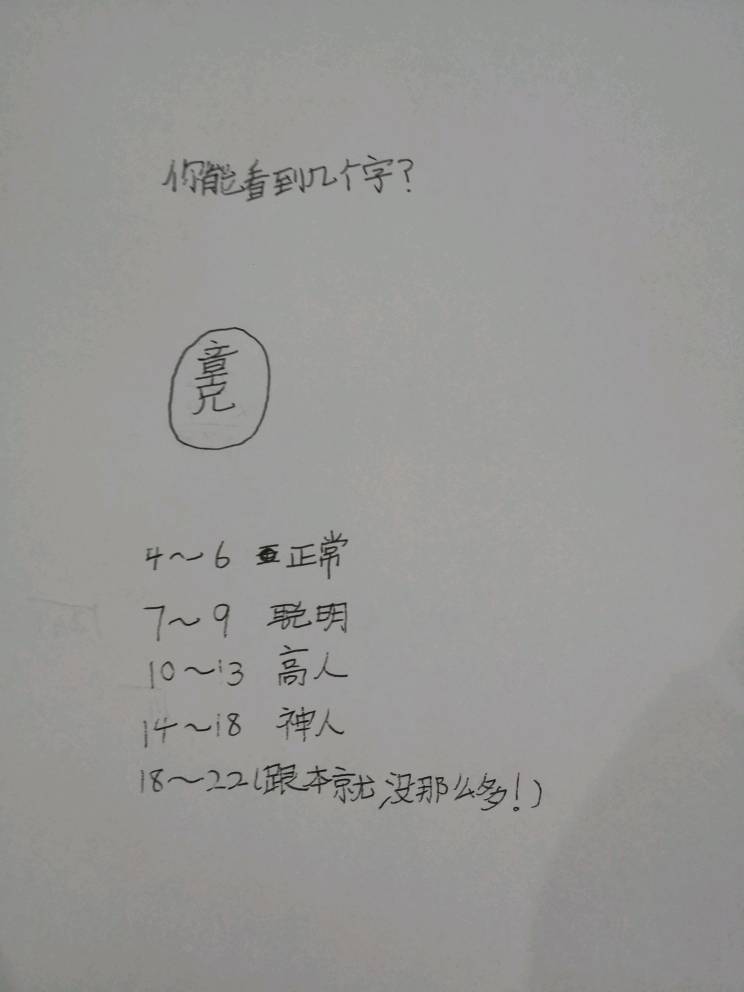 你能看到几个字?
章
兄
4~6 正常
7~9 聪明
10~13 高人
14~18 神人
18~22(跟本就没那么多!)